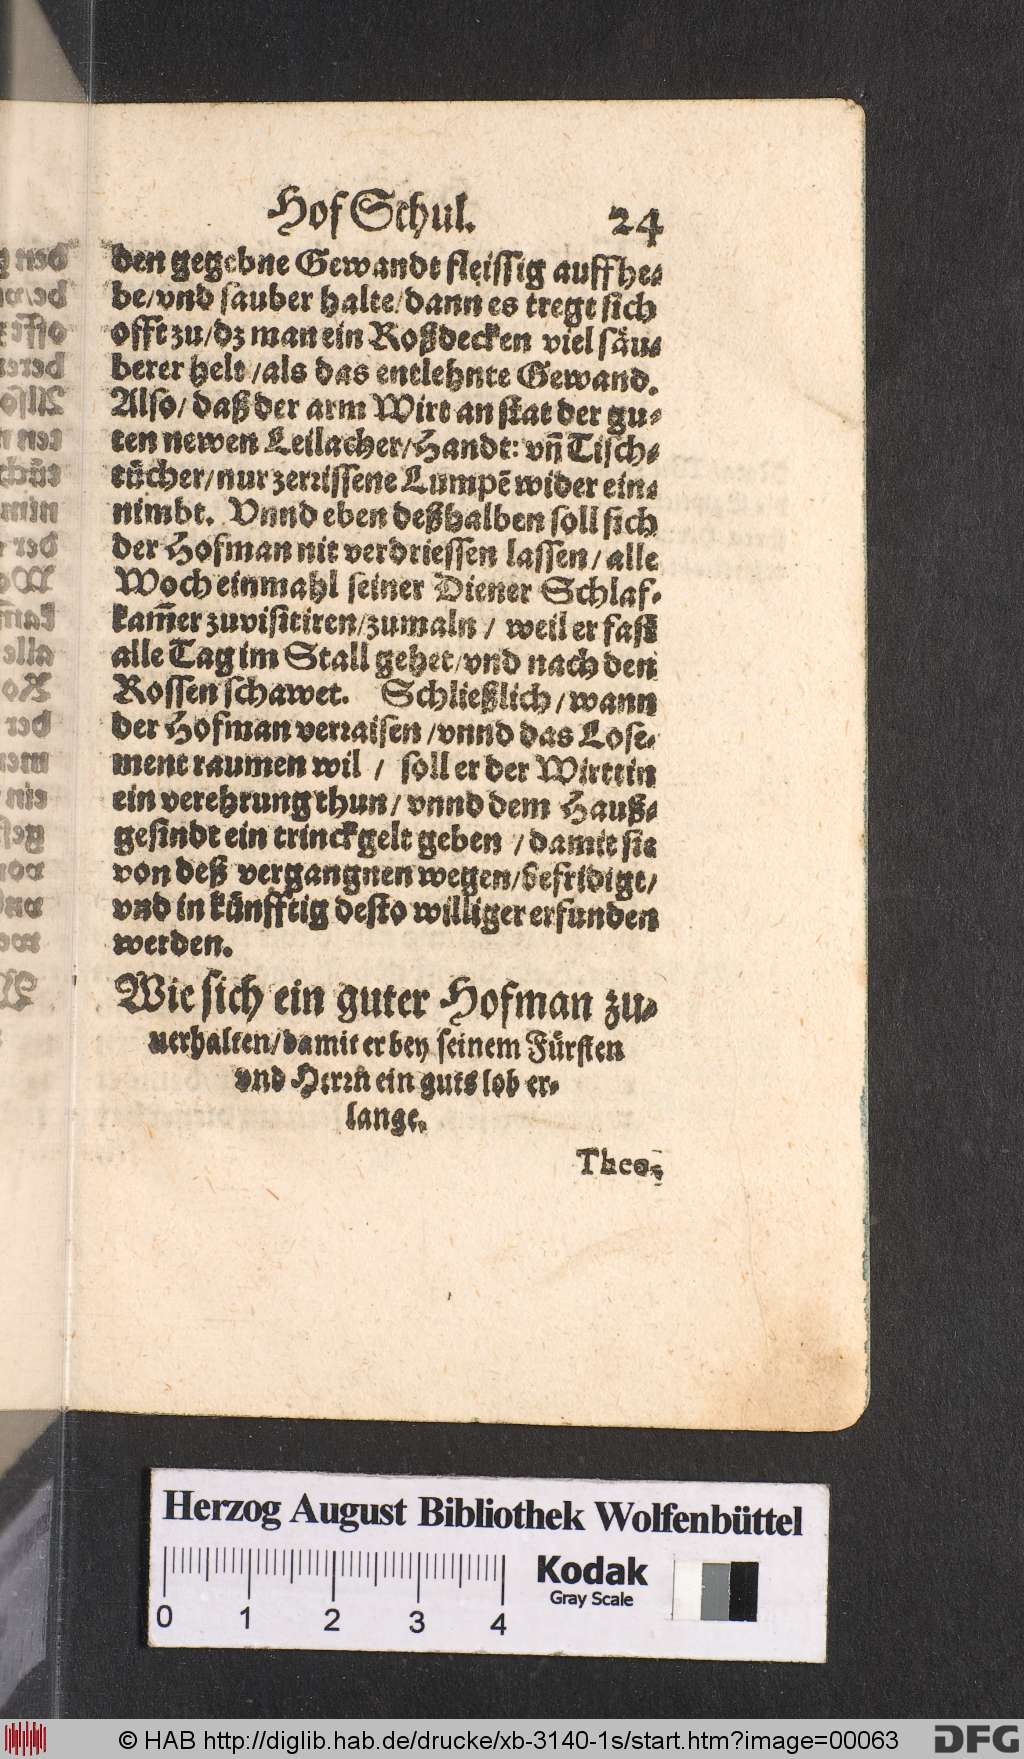 Hof Schul. 24
den gegebne Gewandt fleissig auffhe-
be/vnd sauber halte/dann es tregt sich
offt zu/dz man ein Roßdecken viel säu-
berer helt/als das entlehnte Gewand.
Also/daß der arm Wirt an stat der gu-
ten newen Leilacher/Handt: vñ Tisch-
tücher/nur zerrissene Lumpẽ wider ein-
nimbt. Vnnd eben deßhalben soll sich
der Hofman nit verdriessen lassen/alle
Woch einmahl seiner Diener Schlaf-
kam̃er zuvisitiren/zumaln/ weil er fast
alle Tag im Stall gehet/vnd nach den
Rossen schawet. Schließlich/wann
der Hofman verraisen/vnnd das Lose-
ment raumen wil/ soll er der Wirttin
ein verehrung thun/vnnd dem Hauß-
gesindt ein trinckgelt geben/damit sie
von deß vergangnen wegen/befridigt/
vnd in künfftig desto williger erfunden
werden.
Wie sich ein guter Hofman zu-
uerhalten/damit er bey seinem Fürsten
vnd Herrn ein guts lob er-
lange.
Theo-
Herzog August Bibliothek Wolfenbüttel
Kodak
Gray Scale
0 1 2 3 4
© HAB http://diglib.hab.de/drucke/xb-3140-1s/start.htm?image=00063
DFG